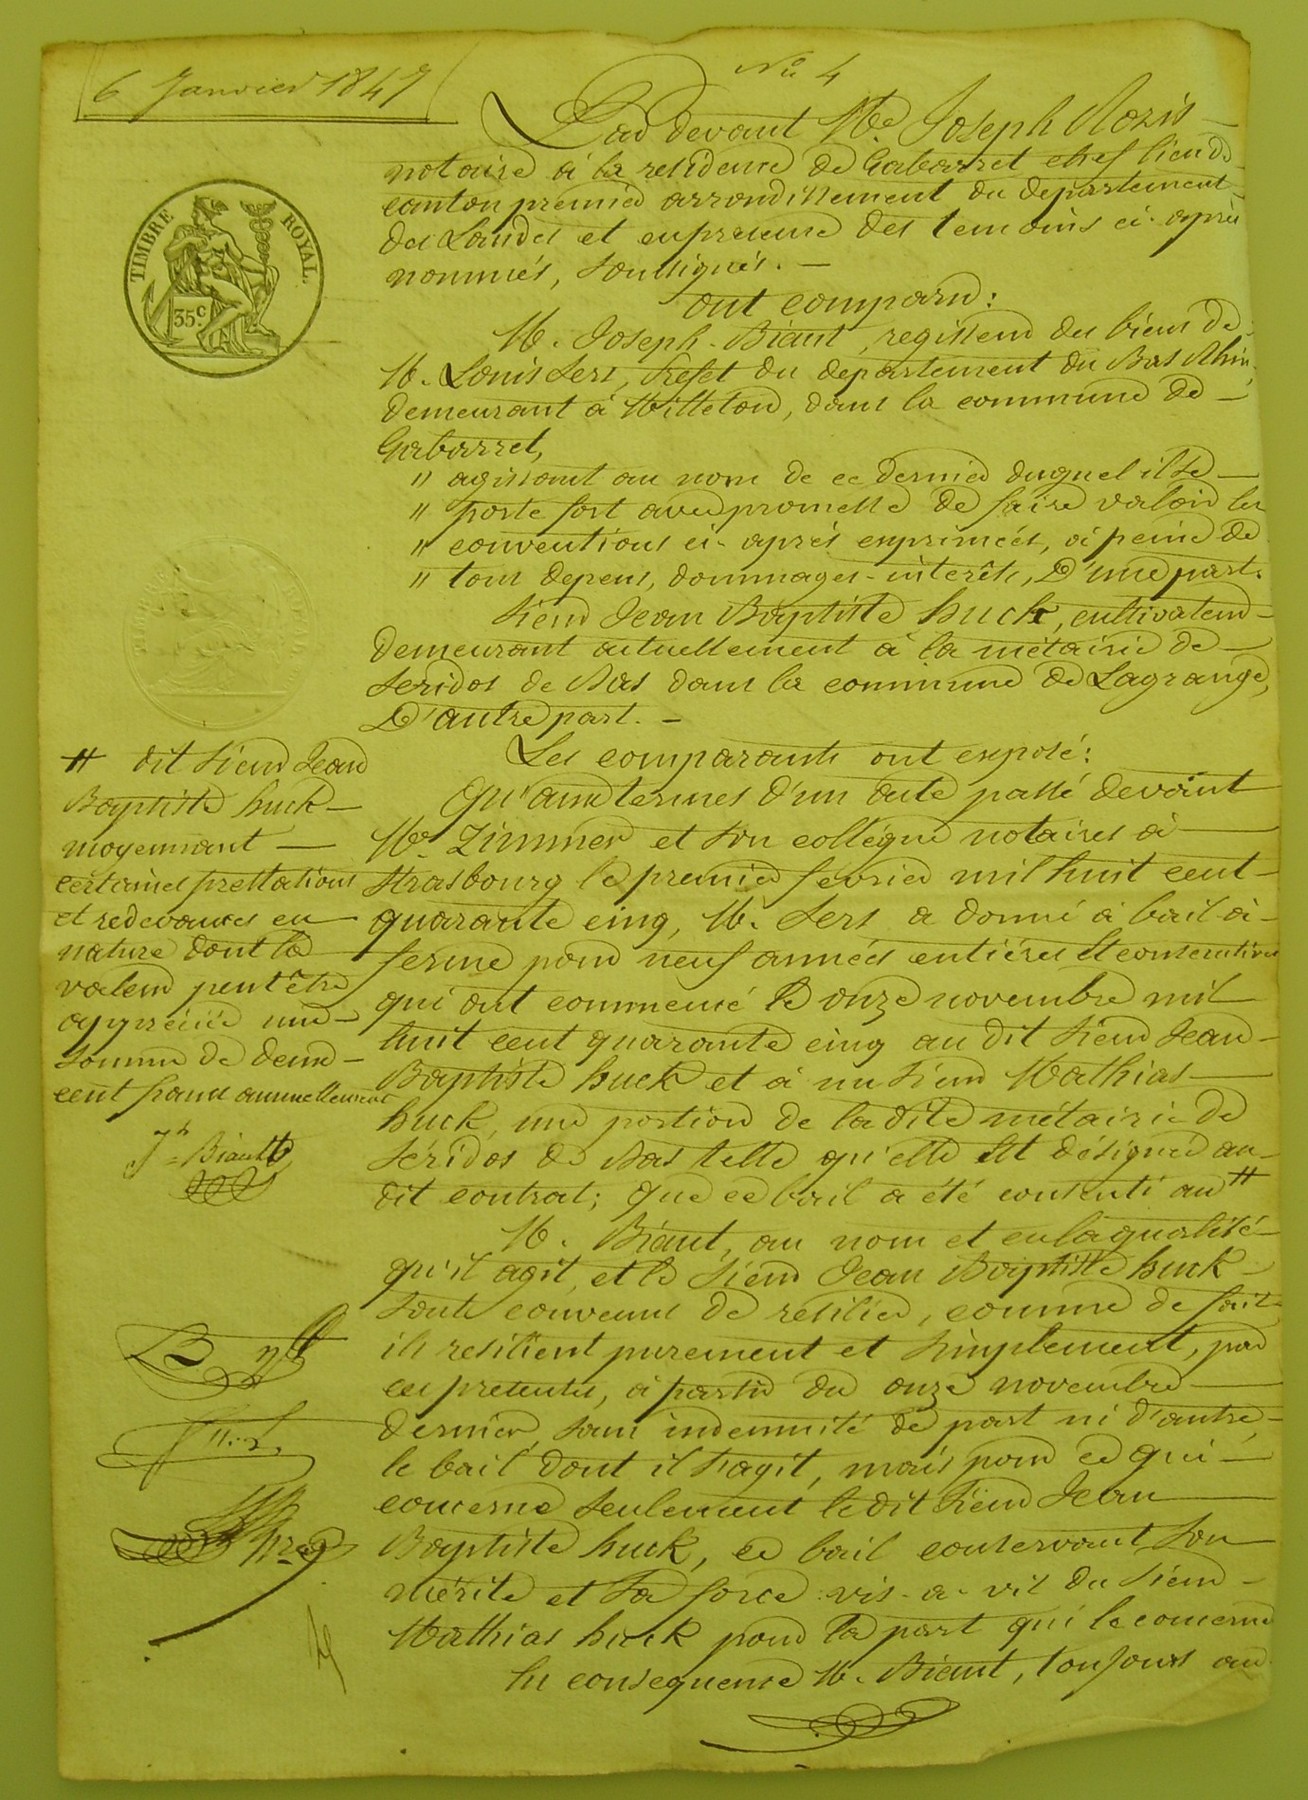 6 Janvier 1847
No 4
Par devant Me. Joseph Rozis
notaire à la residence de Gabarret chef lieu de
canton premier arrondissement du departement
des Landes et en presence des temoins ci-après
nommés, soussignés.
ont comparu:
TIMBRE ROYAL.
35c.
M. Joseph Biaut, regisseur des biens de
M. Louis Sers, Préfet du departement du Bas Rhin,
demeurant à Milleton, dans la commune de
Gabarret,
" agissant au nom de ce dernier duquel il se
" porte fort avec promesse de faire valoir les
" conventions ci-après exprimées, à peine de
" tous depens, dommages-intérêts, D'une part.
Sieur Jean Baptiste huck, cultivateur
demeurant actuellement à la métairie de
Seridos de Bas dans la commune de Lagrange,
D'autre part.
Les comparants ont exposé:
Qu'aux termes d'un acte passé devant
Me. Zimmer et son collègue notaires à
Strasbourg le premier fevrier mil huit cent
quarante cinq, M. Sers a donné à bail à
ferme pour neuf années entières et consecutives
qui ont commencé le onze novembre mil
huit cent quarante cinq au dit Sieur Jean
Baptiste huck et à un sieur Mathias
huck, une portion de la dite métairie de
Séridos de Bas telle qu'elle est désignée au
dit contrat; que ce bail a été consenti au #
# dit Sieur Jean
Baptiste huck
moyennant
certaines prestations
et redevances en
nature dont la
valeur peut être
appréciée une
somme de deux
cent francs annuellement
Jh Biaut
M. Biaut, au nom et en la qualité
qu'il agit, et le Sieur Jean Baptiste huck
sont convenus de resilier, comme de fait
ils resilient purement et simplement, par
ces presentes, à partir du onze novembre
dernier, sans indemnité de part ni d'autre,
le bail dont il s'agit, mais pour ce qui
concerne seulement le dit Sieur Jean
Baptiste huck, ce bail conservant son
mérite et sa force vis-a-vis du Sieur
Mathias huck pour la part qui le concerne
En consequence M. Biaut, toujours au